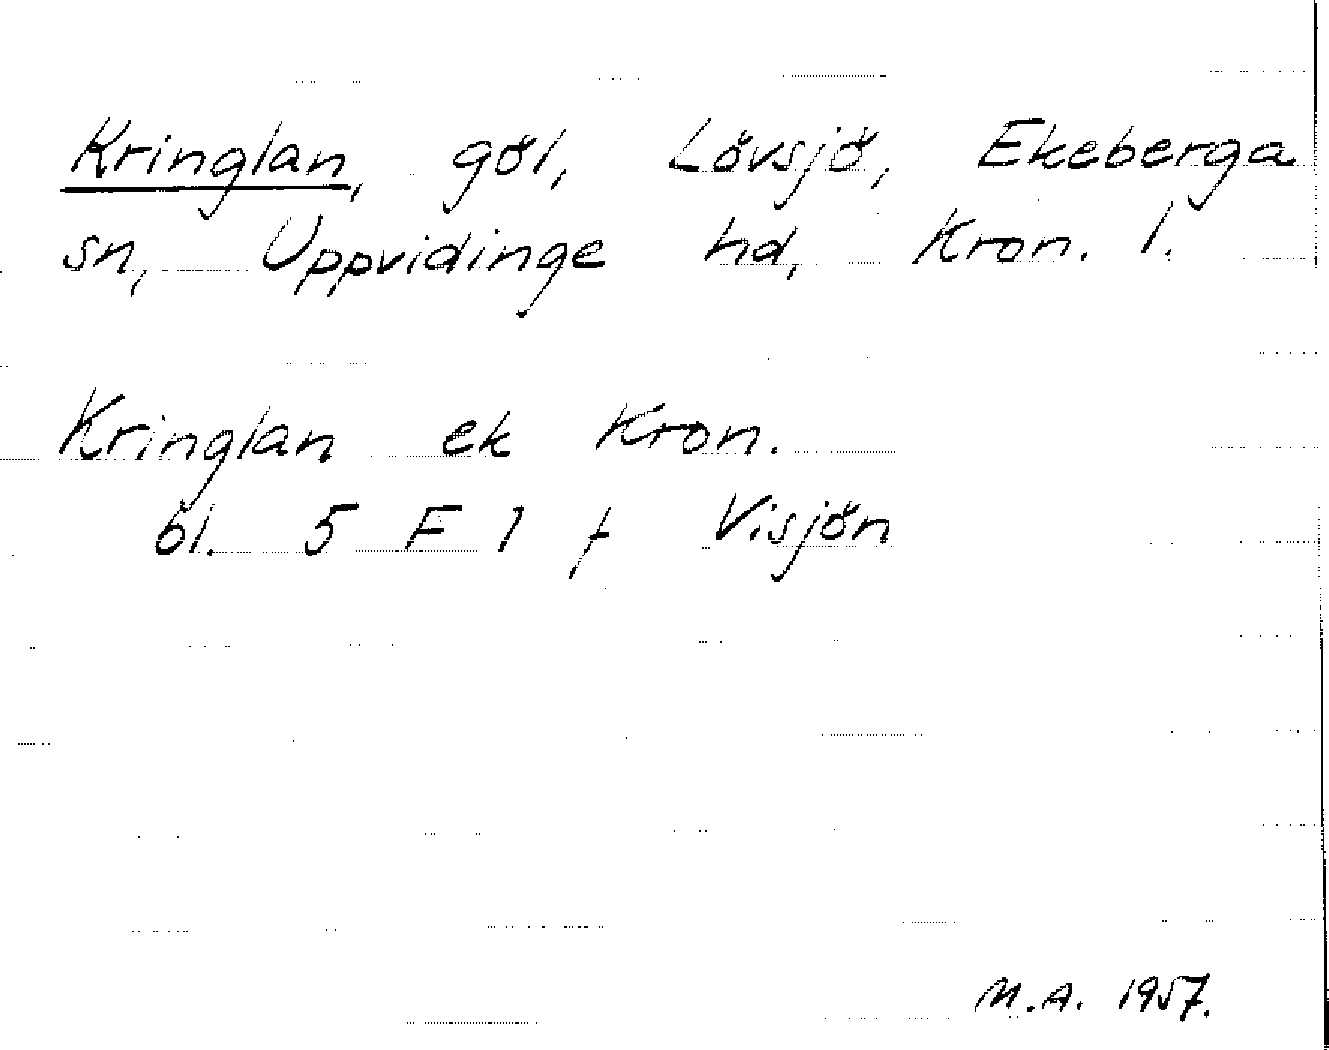 Kringlan, göl, Lövsjö, Ekeberga
sn, Uppvidinge hd, Kron. l.
Kringlan ek Kron.
bl. 5 F 1 f Visjön
M.A. 1957.